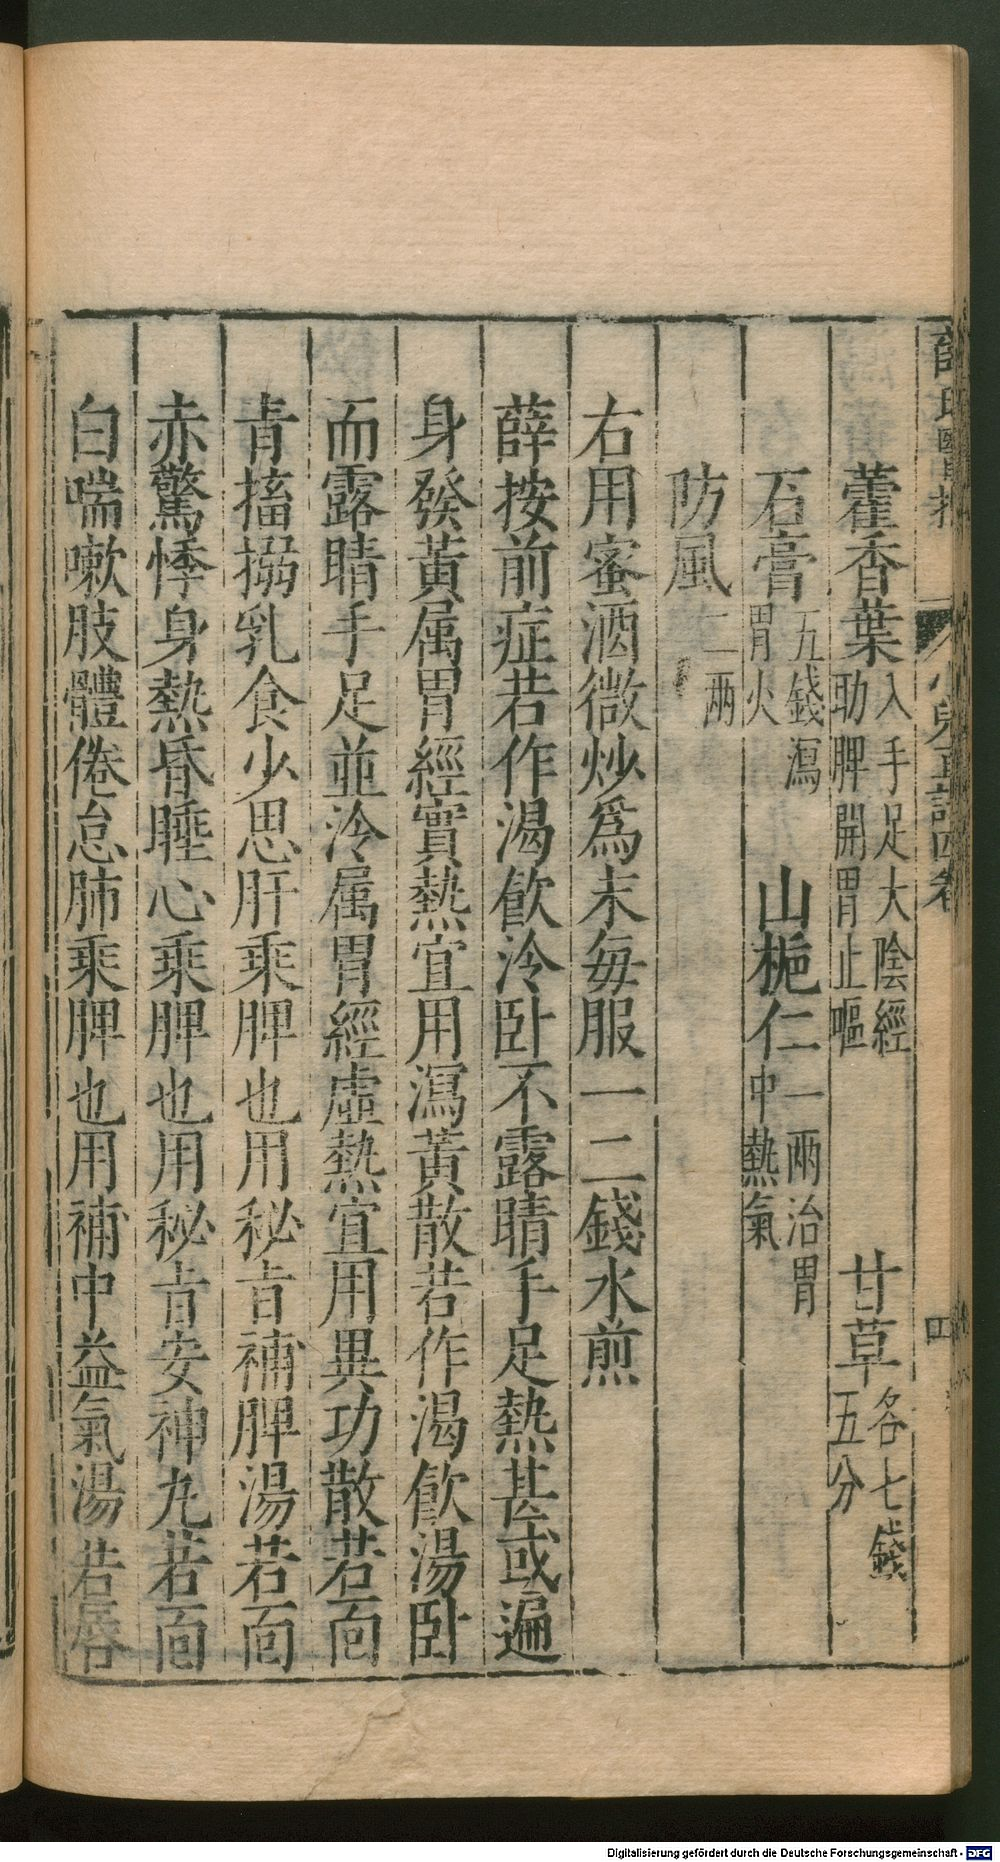 藿香葉入手足大陰經助脾開胃止嘔 甘草各七錢五分
石膏五錢瀉胃火 山梔仁一兩治胃中熱氣
防風二兩
右用蜜酒微炒爲末每服一二錢水煎
薛按前症若作渴飲冷卧不露睛手足熱甚或遍
身發黃属胃經實熱宜用瀉黃散若作渴飲湯卧
而露睛手足並冷属胃經虛熱宜用異功散若面
青搐搦乳食少思肝乘脾也用秘旨補脾湯若面
赤驚悸身熱昏睡心乘脾也用秘旨安神丸若面
白喘嗽肢體倦怠肺乘脾也用補中益氣湯若唇
四
Digitalisierung gefördert durch die Deutsche Forschungsgemeinschaft - DFG